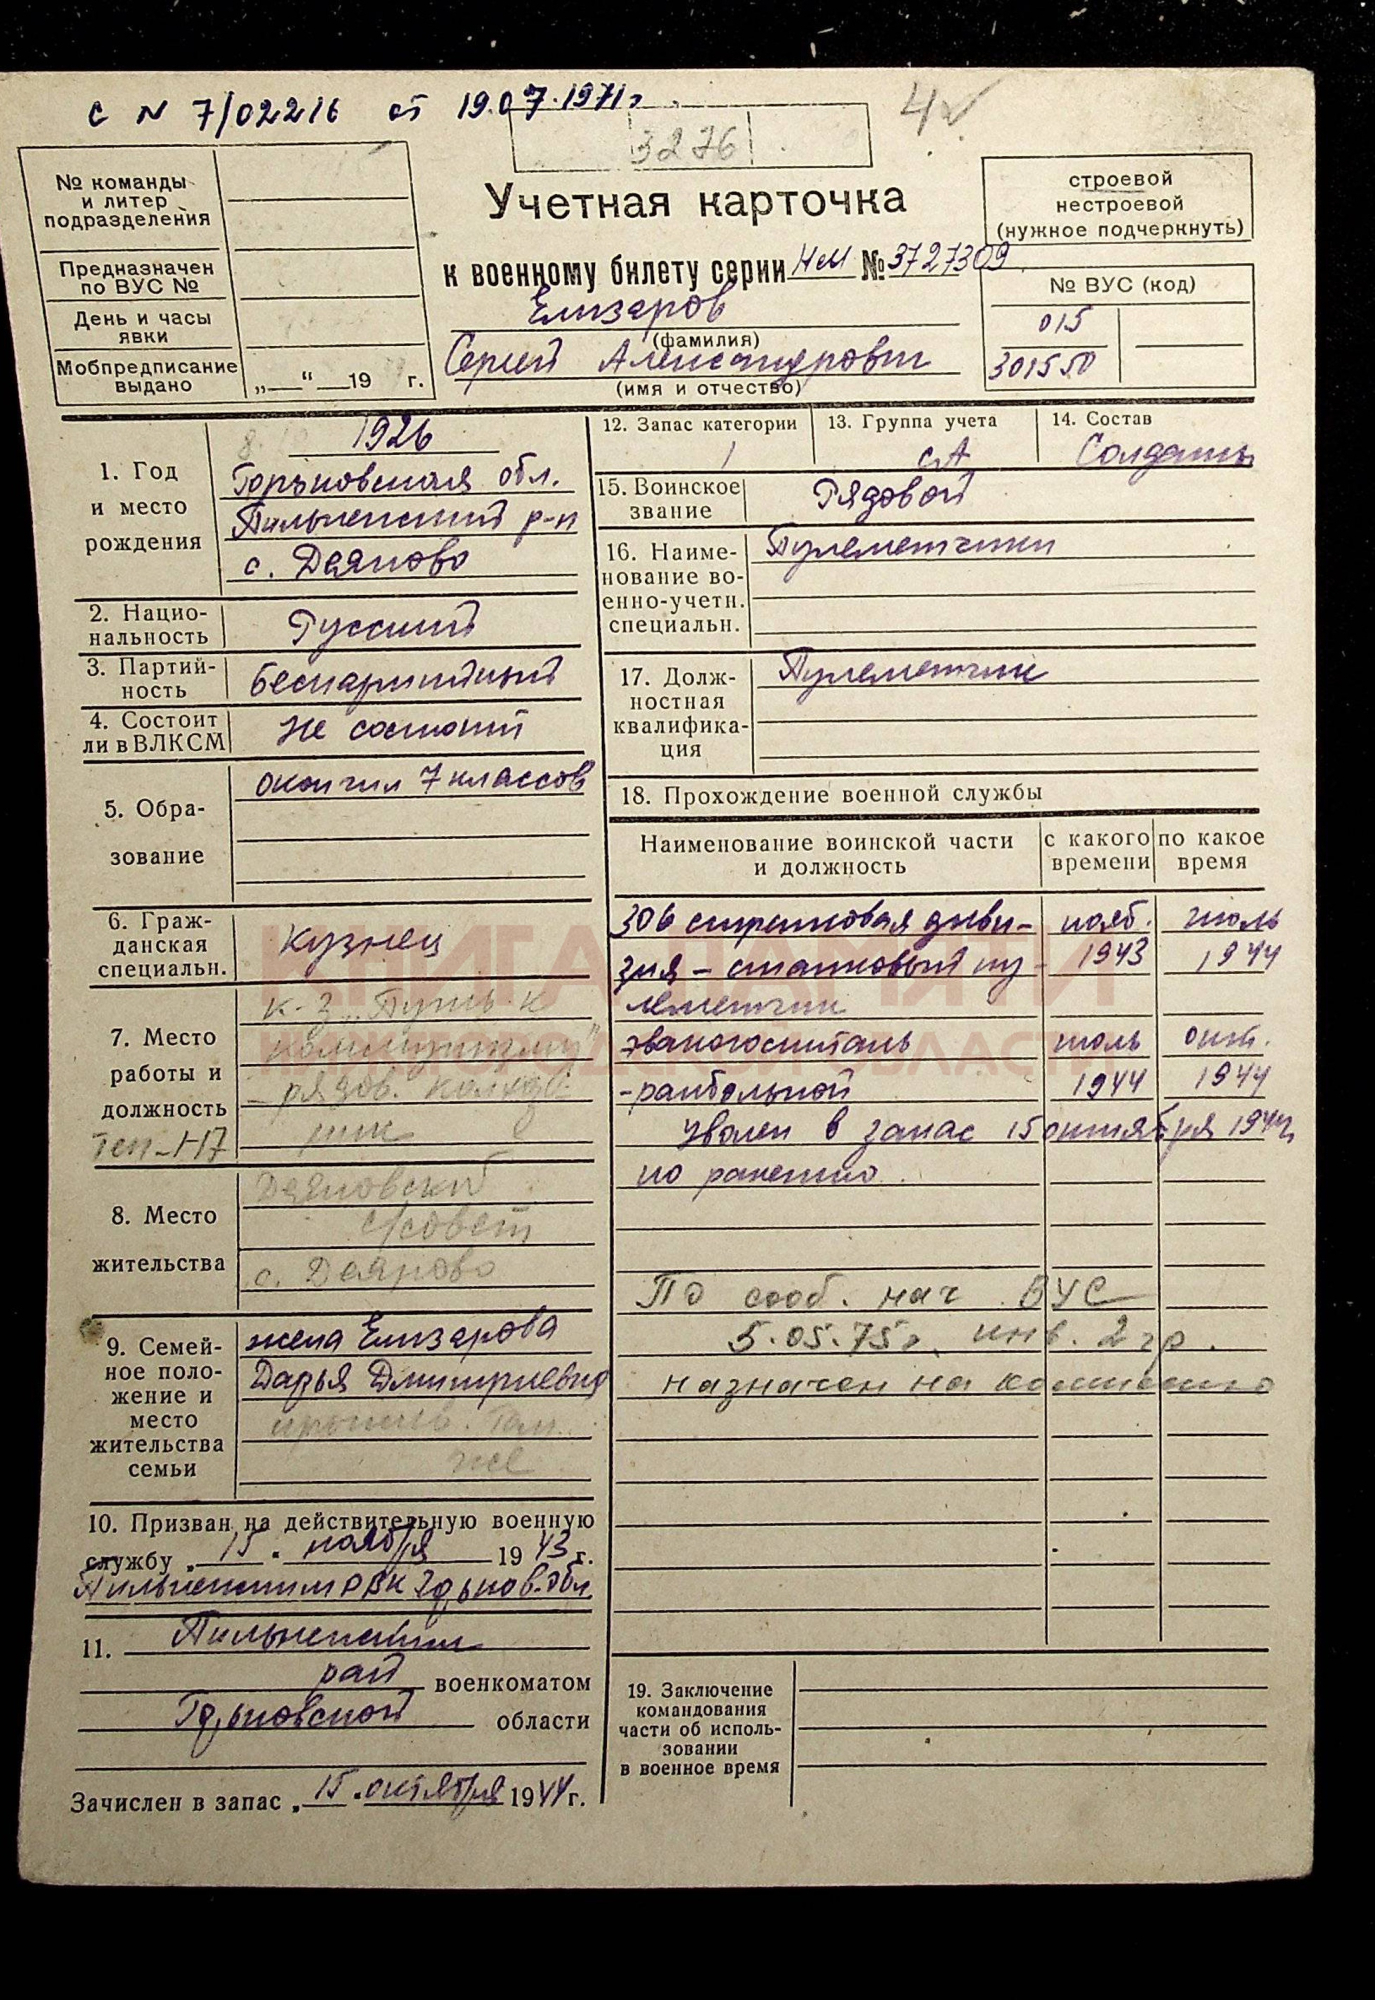 с N 7/02216 от 19.07.1971г
4
3276
№ команды
и литер
подразделения
Предназначен
по ВУС №
День и часы
явки
Мобпредписание
выдано „ “ 19 г.
Учетная карточка
к военному билету серии НМ № 3727309
Елизаров
(фамилия)
Сергей Александрович
(имя и отчество)
строевой
нестроевой
(нужное подчеркнуть)
№ ВУС (код)
015
301550
1. Год
и место
рождения
1926
Горьковская обл.
Пильненский р-н
с. Деяново
2. Нацио-
нальность
Русский
3. Партий-
ность
беспартийный
4. Состоит
ли в ВЛКСМ
Не состоит
5. Обра-
зование
окончил 7 классов
6. Граж-
данская
специальн.
Кузнец
7. Место
работы и
должность
к-з „Путь к
коммунизму"
- рядов. колхоз-
ник
8. Место
жительства
Деяновский
с/совет
с. Деяново
9. Семей-
ное поло-
жение и
место
жительства
семьи
жена Елизарова
Дарья Дмитриевна
прожив. там
же
10. Призван на действительную военную
службу „ 15 " ноября 1943 г.
Пильненским РВК Горьков. обл.
11. Пильненским
рай военкоматом
Горьковской области
Зачислен в запас „ 15 " октября 1944 г.
12. Запас категории
1
13. Группа учета
СА
14. Состав
Солдаты
15. Воинское
звание
Рядовой
16. Наиме-
нование во-
енно-учетн.
специальн.
Пулеметчики
17. Долж-
ностная
квалифика-
ция
Пулеметчик
18. Прохождение военной службы
Наименование воинской части
и должность
с какого
времени
по какое
время
306 стрелковая диви- нояб. июль
зия - станковый пу- 1943 1944
леметчик
эвакогоспиталь июль окт.
-ранбольной 1944 1944
Уволен в запас 15 октября 1944г
по ранению
По сооб. нач ВУС
5.05.75г. инв. 2 гр.
назначен на комиссию
19. Заключение
командования
части об исполь-
зовании
в военное время
КНИГА ПАМЯТИ
НИЖЕГОРОДСКОЙ ОБЛАСТИ